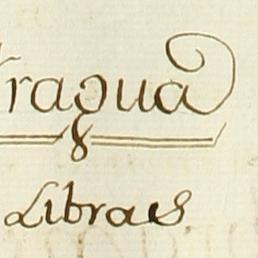 fragua
Libras